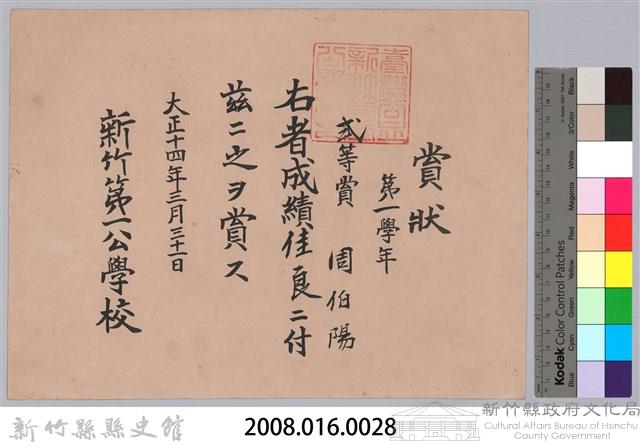 賞狀
第一學年
弍等賞 周伯陽
右者成績佳良ニ付
茲ニ之ヲ賞ス
大正十四年三月三十一日
新竹第一公學校
Black
3/Color
White
Magenta
Red
Yellow
Green
Cyan
Blue
Kodak Color Control Patches
新竹縣縣史館
2008.016.0028
新竹縣政府文化局
Cultural Affairs Bureau of Hsinchu
County Government